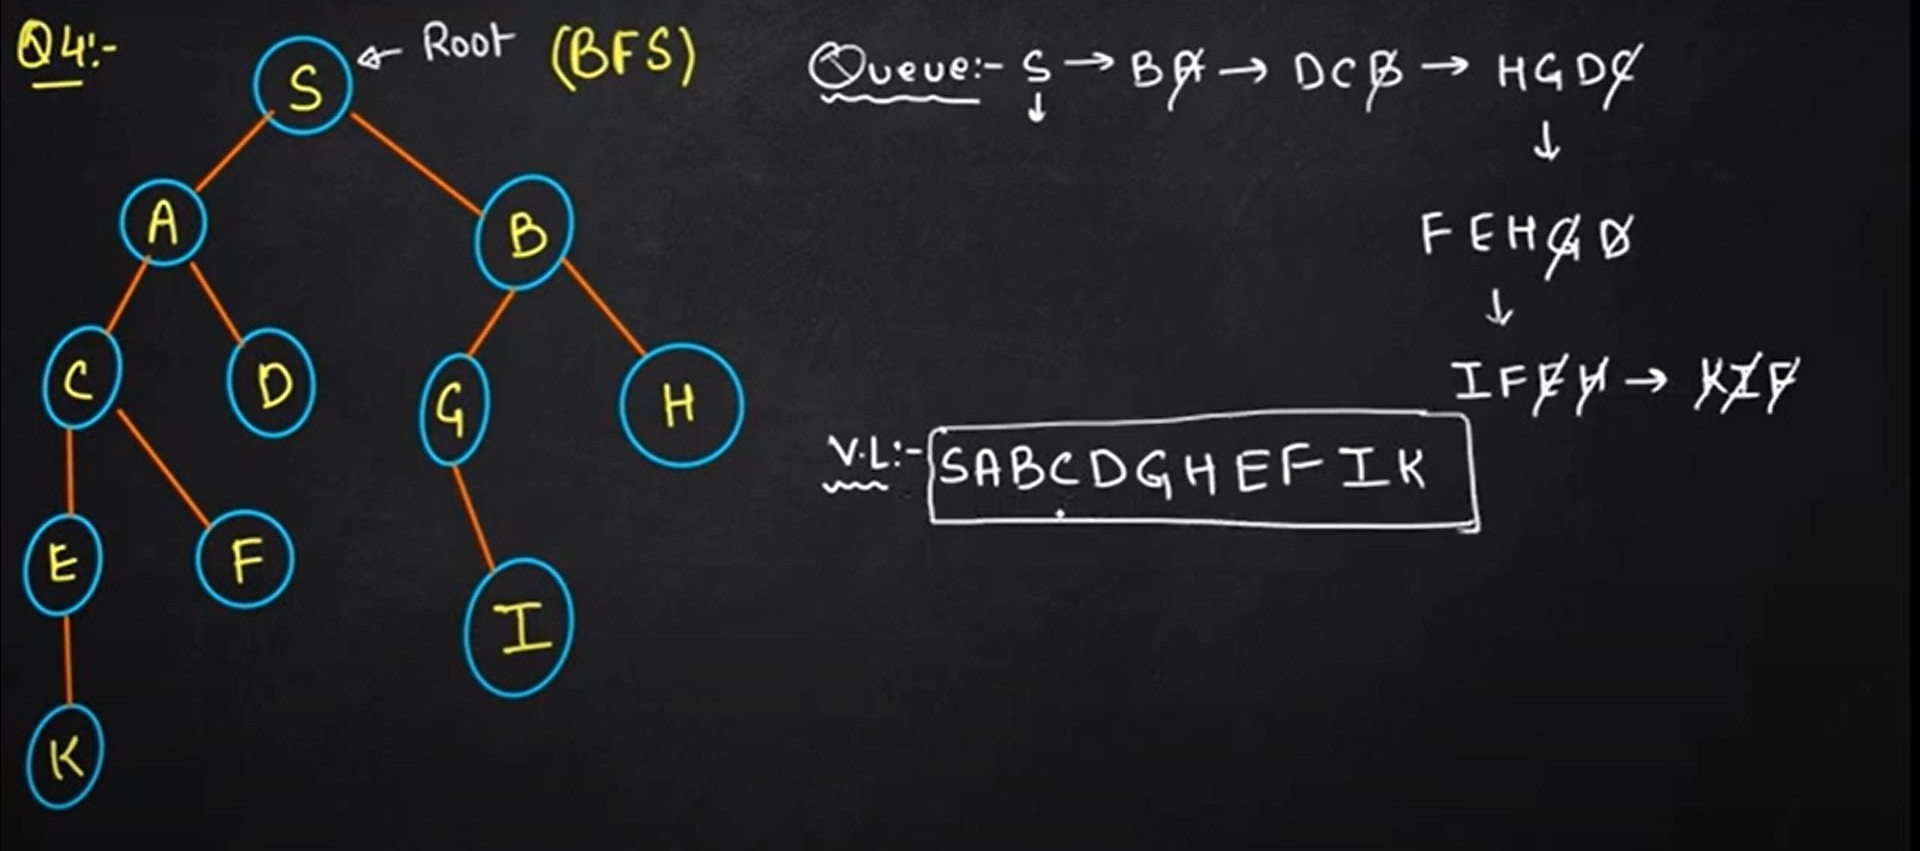 Q4:-
S
← Root (BFS)
A
B
C
D
G
H
E
F
I
K
Queue:- S → BA → DCB → HGDC
↓
↓
FEHGD
↓
IFEH → KIF
V.L:- SABCDGHEFIK